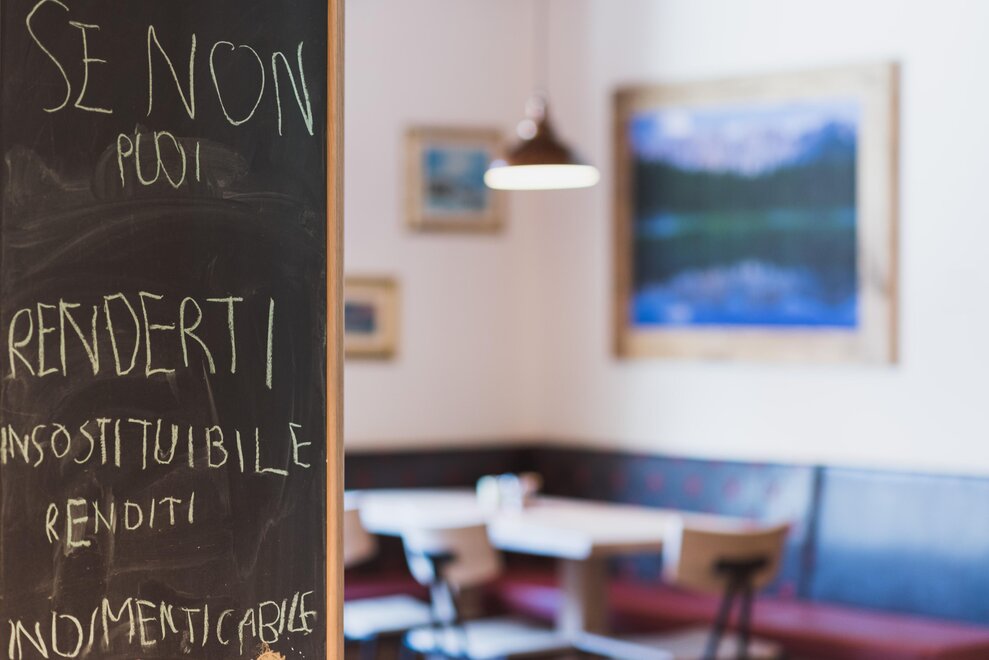 SE NON
PUOI
RENDERTI
INSOSTITUIBILE
RENDITI
INDIMENTICABILE